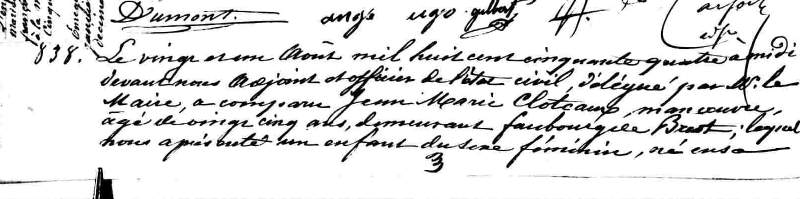 Dumont. ange ugo gilbert
838. Le vingt et un Août mil huit cent cinquante quatre à midi
devant nous Adjoint et officier de l'état civil, délégué par Mr. le
Maire, a comparu Jean Marie Cloteaux, manœuvre,
âgé de vingt cinq ans, demeurant faubourg de Brest, lequel
nous a présenté un enfant du sexe féminin, né en sa
3